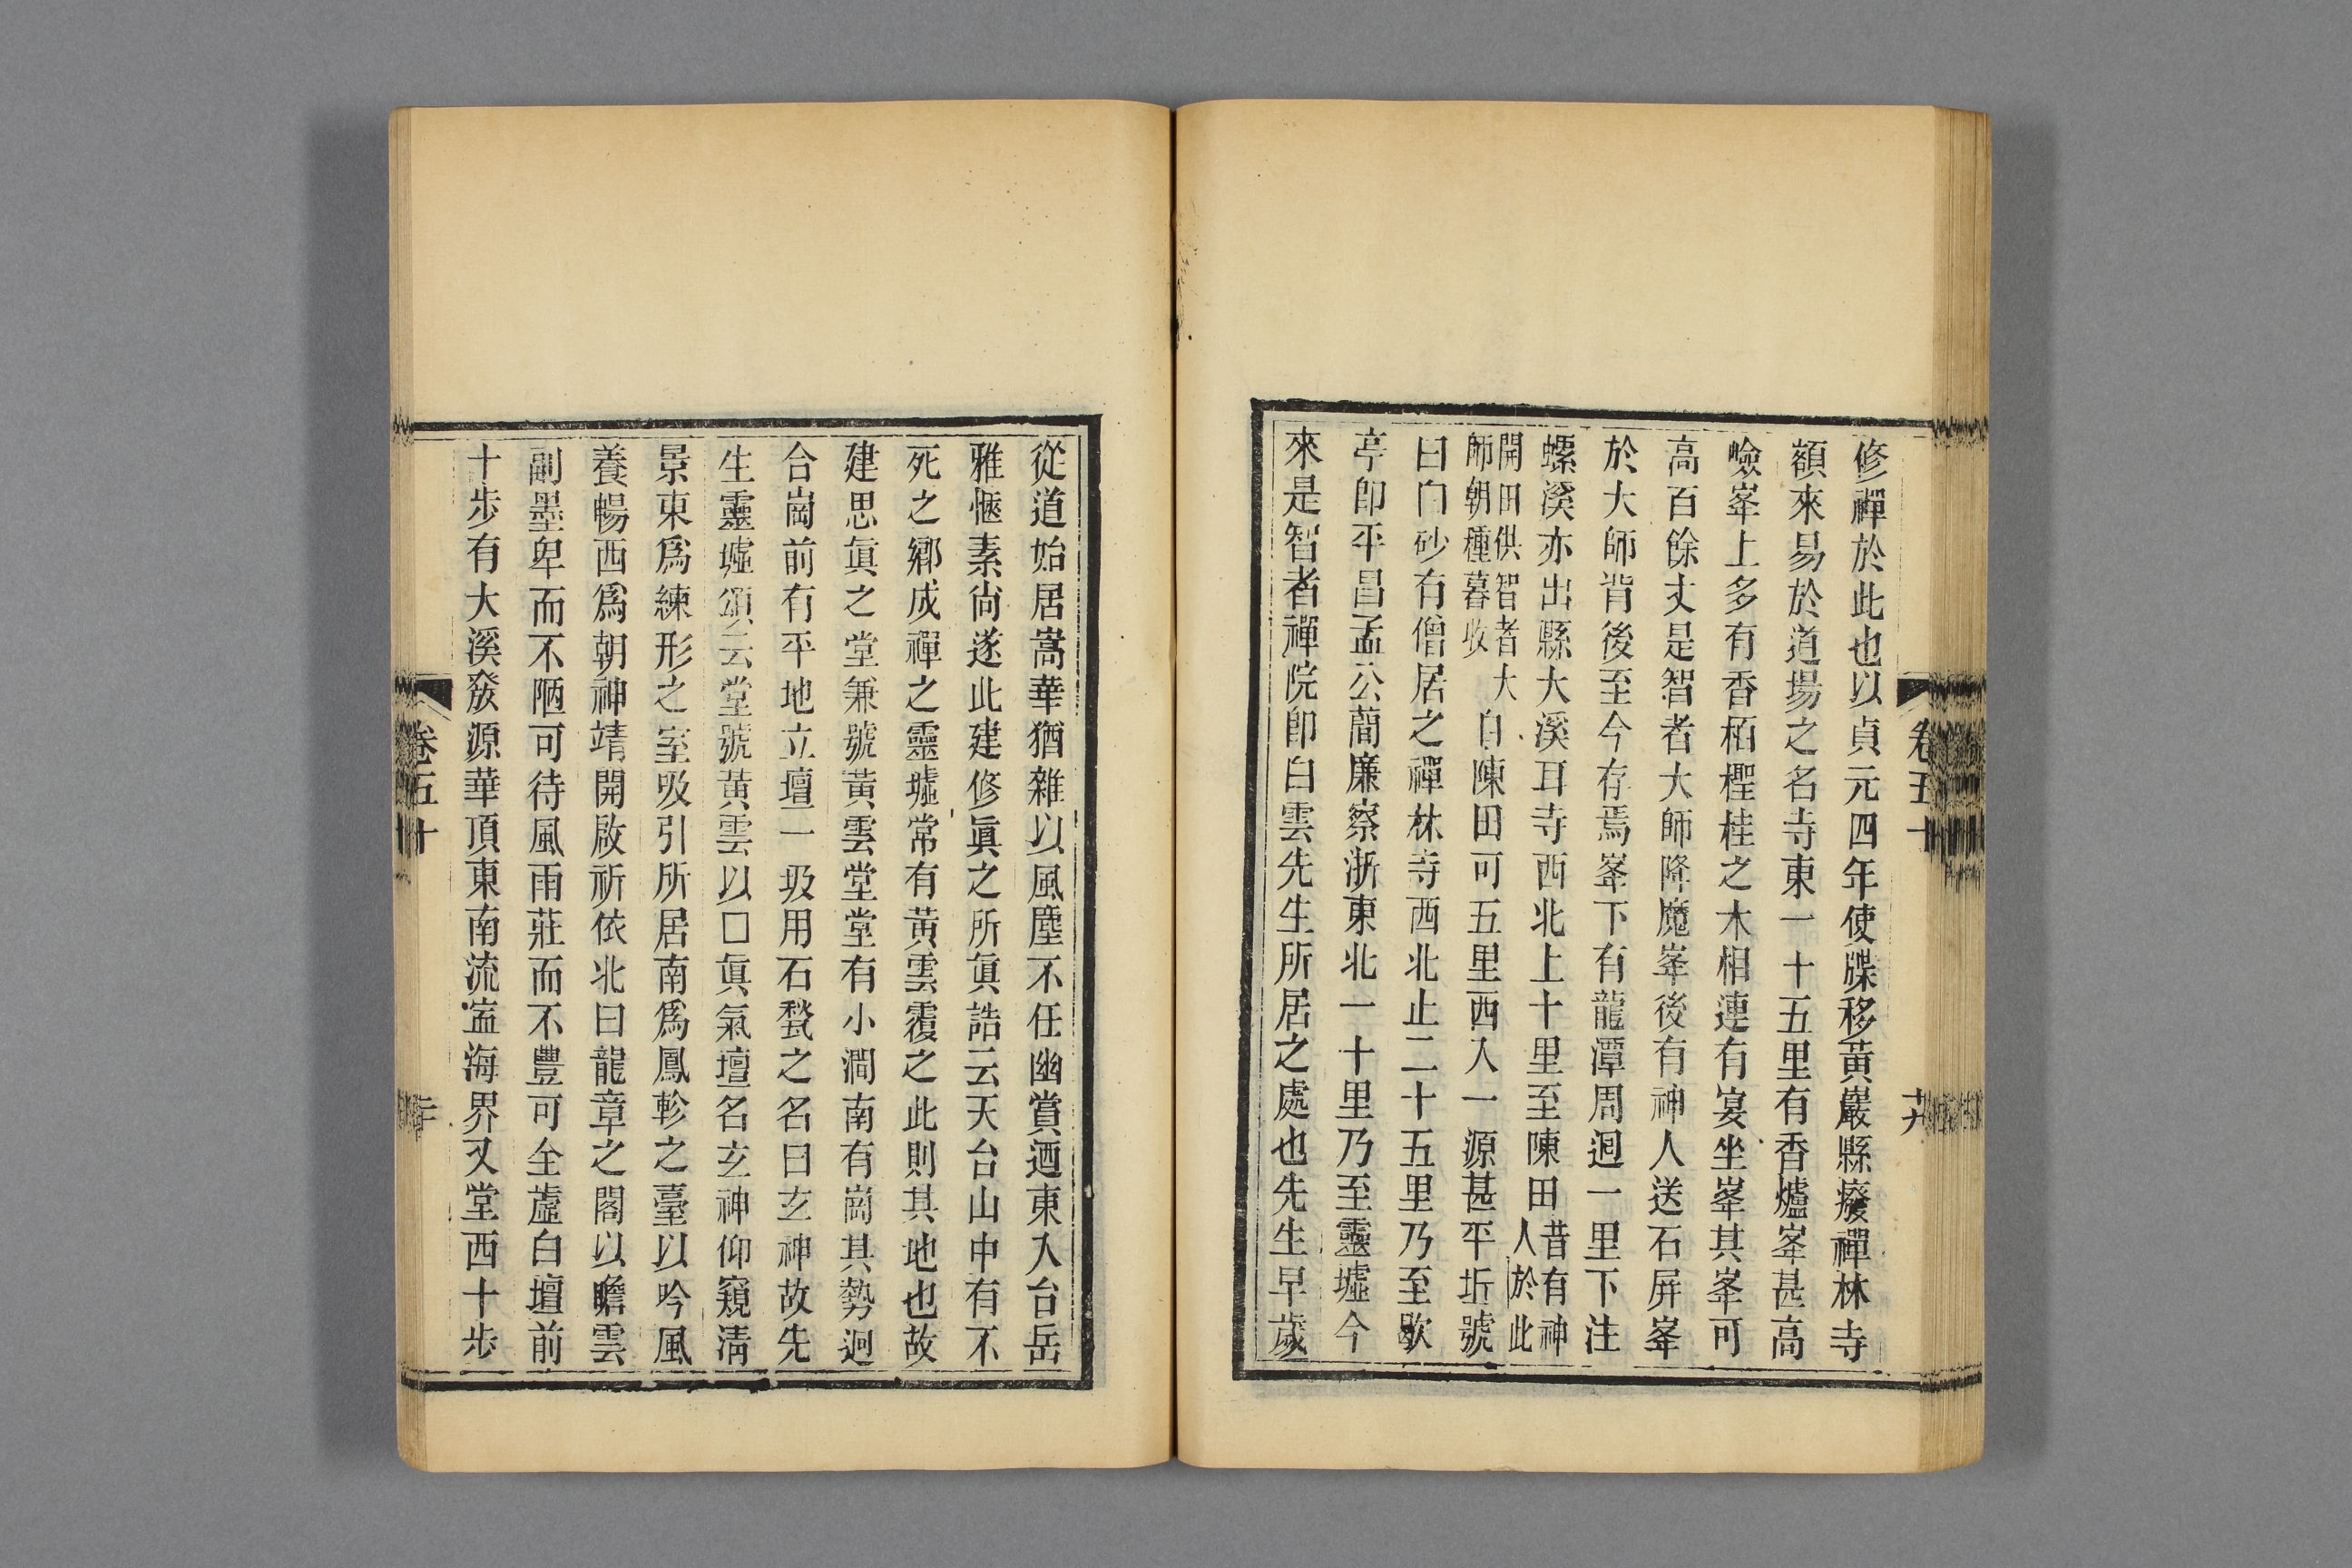 卷五十
十九
修禪於此也以貞元四年使牒移黃巖縣廢禪林寺
額來易於道場之名寺東一十五里有香爐峯甚高
嶮峯上多有香栢檉桂之木相連有宴坐峯其峯可
高百餘丈是智者大師降魔峯後有神人送石屏峯
於大師背後至今存焉峯下有龍潭周迴一里下注
螺溪亦出縣大溪耳寺西北上十里至陳田昔有神人於此
開田供智者大師朝種暮收自陳田可五里西入一源甚平坵號
曰白砂有僧居之禪林寺西北止二十五里乃至歇
亭卽平昌孟公蕑廉察浙東北一十里乃至靈墟今
來是智者禪院卽白雲先生所居之處也先生早歲
從道始居嵩華猶雜以風塵不任幽賞迺東入台岳
雅愜素尙遂此建修眞之所眞誥云天台山中有不
死之鄉成禪之靈墟常有黃雲覆之此則其地也故
建思眞之堂兼號黃雲堂堂有小澗南有崗其勢迴
合崗前有平地立壇一圾用石甃之名曰玄神故先
生靈墟頌云堂號黃雲以□眞氣壇名玄神仰窺淸
景東爲練形之室吸引所居南爲鳳軫之臺以吟風
養暢西爲朝神靖開啟祈依北曰龍章之閣以瞻雲
副墨卑而不陋可待風雨莊而不豐可全虛白壇前
十步有大溪發源華頂東南流寍海界又堂西十步
卷五十
二十